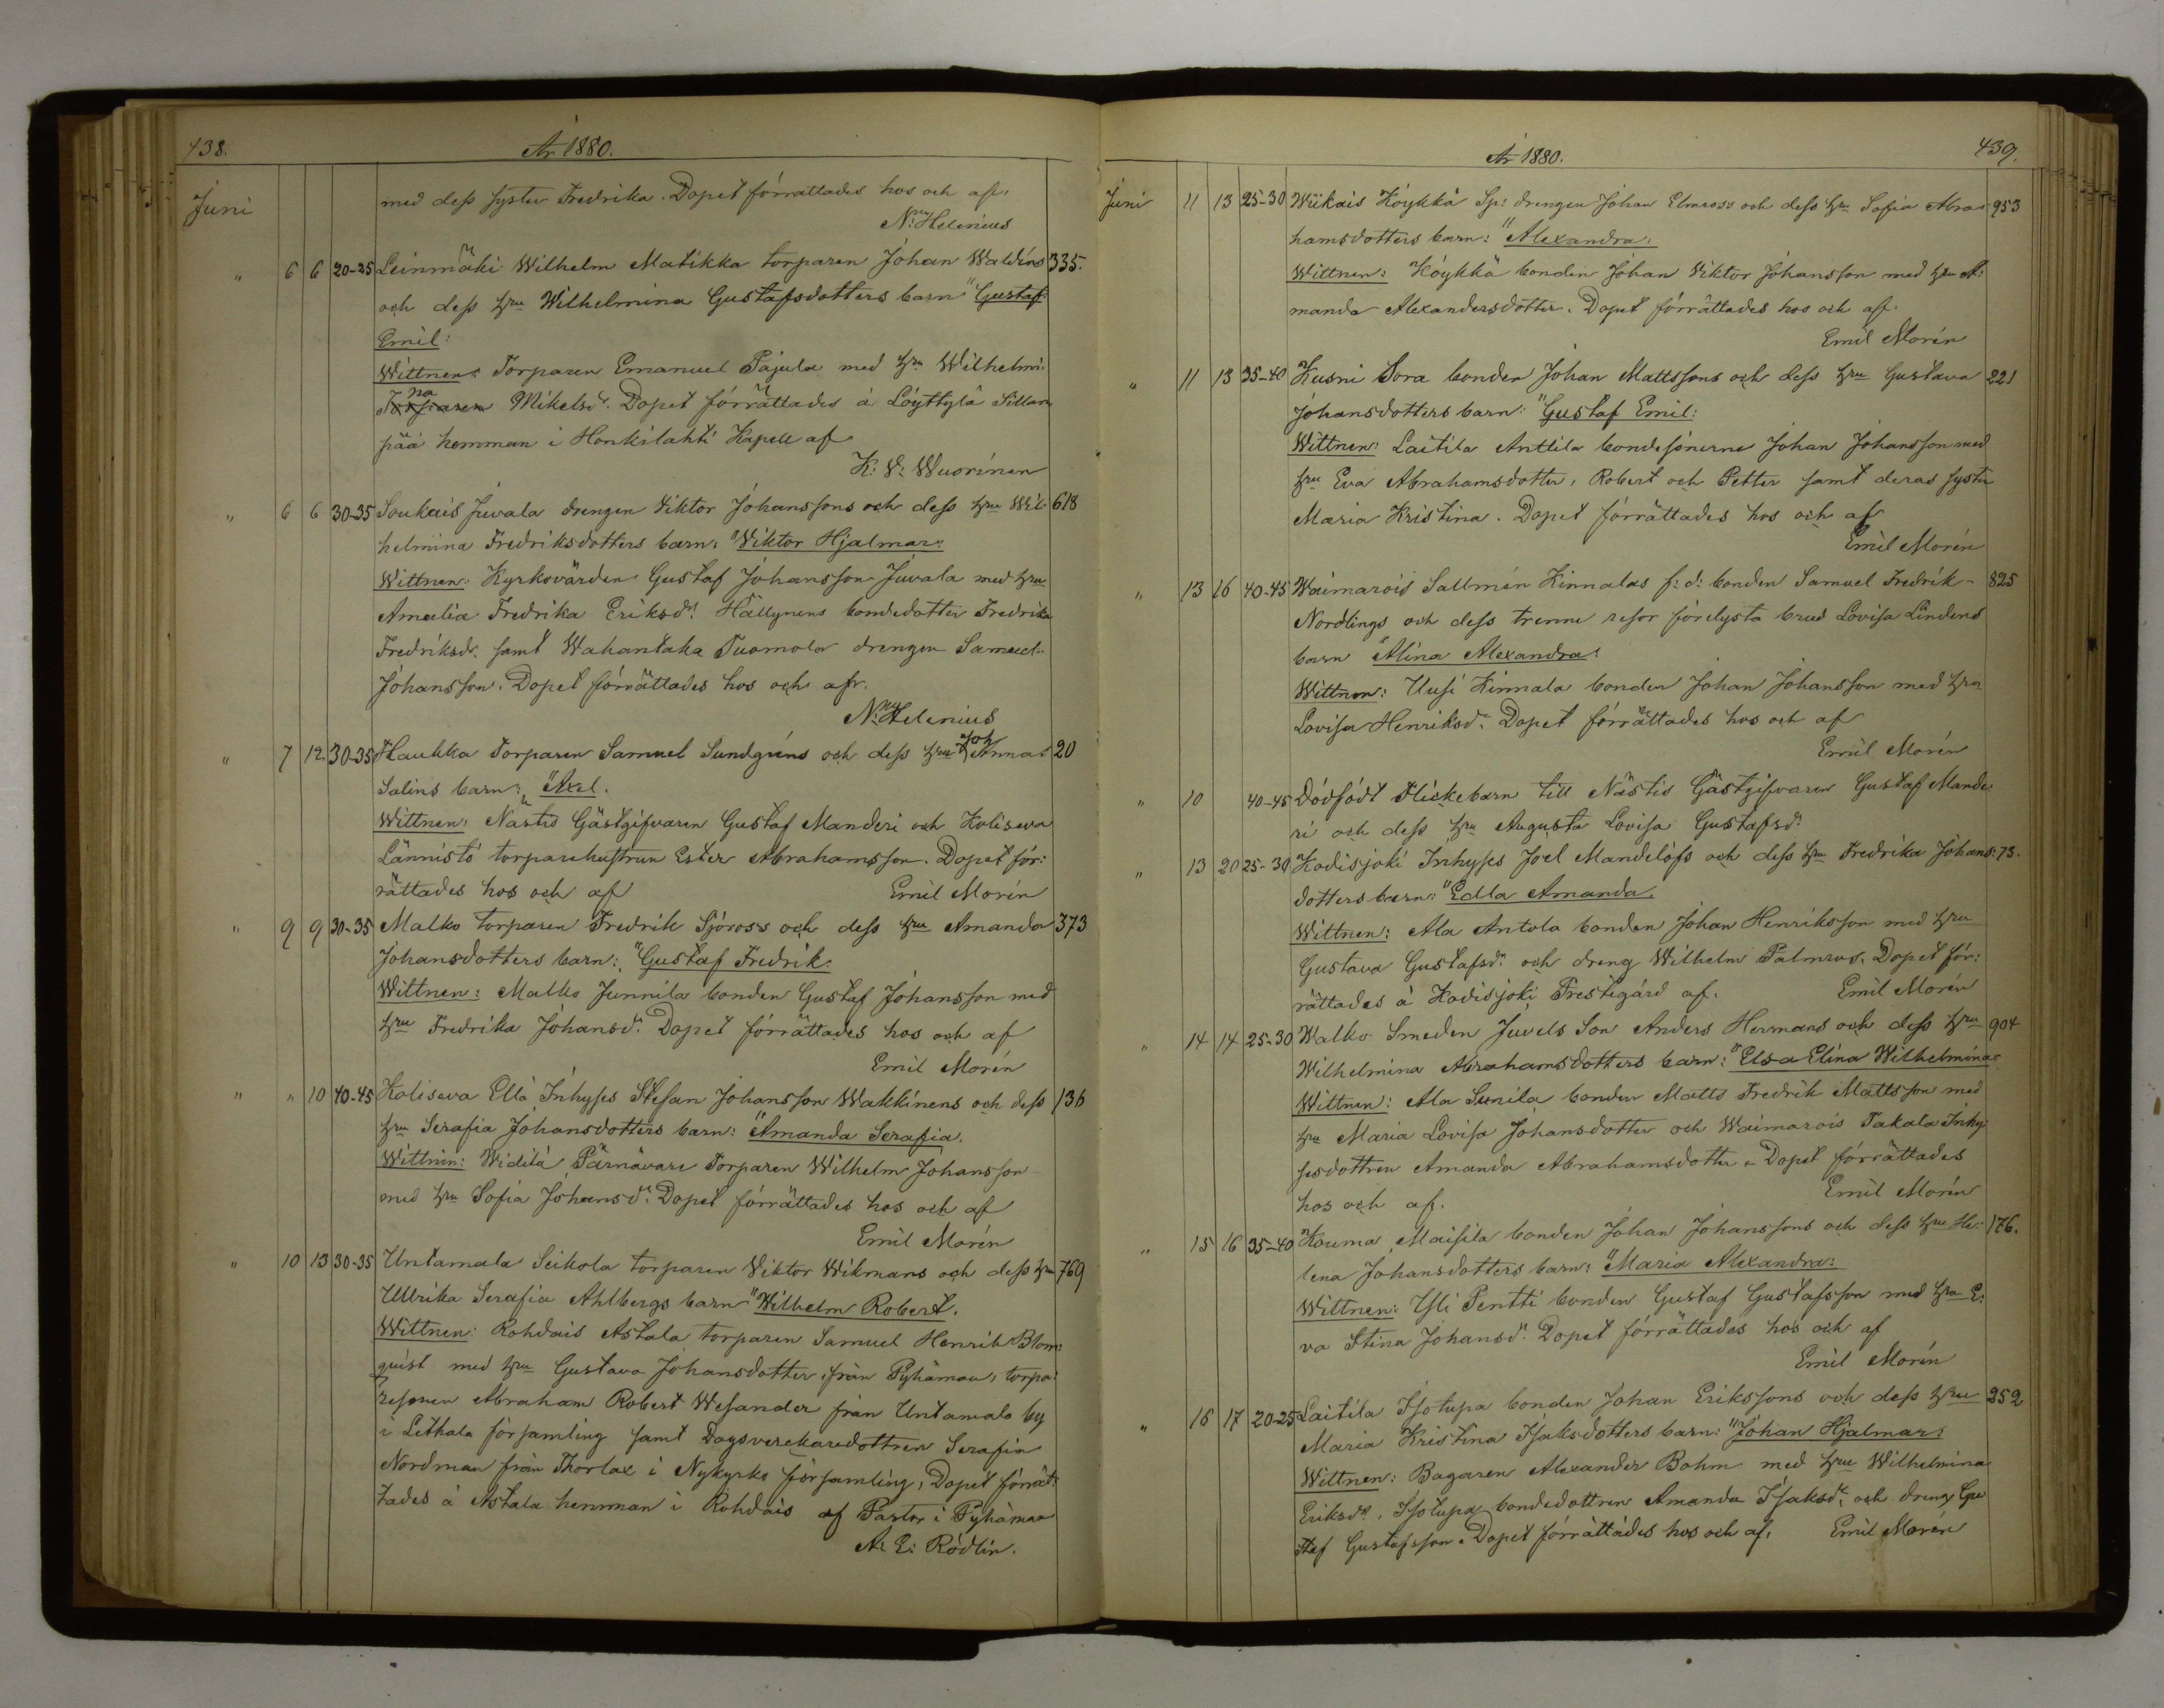 438.
År 1880.
Juni
med dess syster Fredrika. Dopet förrättades hos och af.
N. Helenius
" 6 6 20-25 Leinmäki Wilhelm Matikka torparen Johan Waldins 335.
och dess hru Wilhelmina Gustafsdotters barn "Gustaf
Emil:
Wittnen: Torparen Emanuel Pajula med hru Wilhelmi:
na
Torparen Mikelsdr. Dopet förrättades å Löyttylä Sillan
pää hemman i Honkilahti Kapell af
K: W: Wuorinen
" 6 6 30-35 Soukais Juvala drengen Viktor Johanssons och dess hru Wil: 618
helmina Fredriksdotters barn: "Wiktor Hjalmar:
Wittnen: Kyrkovärden Gustaf Johansson Juvala med hru
Amalia Fredrika Eriksdr. Hällynens bondedotter Fredrika
Fredriksdr. samt Wahantaka Tuomola drengen Samuel
Johansson. Dopet förrättades hos och af.
N. Helenius
" 7 12. 30-35 Haukka Torparen Samuel Sundgréns och dess hru Joh Anna 20
Salins barn: "Axel.
Wittnen: Nästis Gästgifvaren Gustaf Manderi och Kolisewa
Lännistö torparehustrun Ester Abrahamsson. Dopet för:
rättades hos och af Emil Morén
" 9 9 30-35 Malko torparen Fredrik Sjöross och dess hru Amanda 373
Johansdotters barn: "Gustaf Fredrik:
Wittnen: Malko Junnila bonden Gustaf Johansson med
hru Fredrika Johansdr. Dopet förrättades hos och af
Emil Morén
" " 10 40-45 Kolisewa Ellä Inhyses Stefan Johansson Wakkinens och dess 136
hru Serafia Johansdotters barn: "Amanda Serafia.
Wittnen: Widilä Pärnävare Torparen Wilhelm Johansson
med hru Sofia Johansdr. Dopet förrättades hos och af
Emil Morén
" 10 13 30-35 Untamala Seikola torparen Viktor Wikmans och dess hru 769
Ullrika Serafia Ahlbergs barn "Wilhelm Robert.
Wittnen: Rohdais Astala torparen Samuel Henrik Blom:
quist med hru Gustava Johansdotter från Pyhämaa, torpa:
resonen Abraham Robert Wesander från Untamala by
i Lethala församling samt Dagsverekaredottren Serafia
Nordman från Thorlax i Nykyrko församling, Dopet förrät:
tades å Astala hemman i Rohdais af Pastor i Pyhämaa
A: E: Rödlin.
439.
År 1880.
Juni 11 13 25-30 Wiikais Köykkä Sp: drengen Johan Elmross och dess hru Sofia Abra: 953
hamsdotters barn: "Alexandra.
Wittnen: Köykkä bonden Johan Viktor Johansson med hru A:
manda Alexandersdotter. Dopet förrättades hos och af.
Emil Morén
" 11 13 35-40 Kusni Sora bonden Johan Mattssons och dess hru Gustava 221
Johansdotters barn: "Gustaf Emil:
Wittnen: Laitila Anttila bondesönerne Johan Johansson med
hru Eva Abrahamsdotter, Robert och Petter samt deras syster
Maria Kristina. Dopet förrättades hos och af
Emil Morén
" 13 16 40-45 Waimarois Sallmén Kinnalas f: d: bonden Samuel Fredrik 825
Nordlings och dess trenne resor förelysta brud Lovisa Lindens
barn "Alina Alexandra:
Wittnen: Uusi Kinnala bonden Johan Johansson med hru
Lovisa Henriksdr. Dopet förrättades hos och af
Emil Morén
" 10 40-45 Dödfödt Flickebarn till Nästis Gästgifvaren Gustaf Mande:
ri och dess hru Augusta Lovisa Gustafsdr.
" 13 20 25-30 Kodisjoki Inhyses Joel Mandelöfs och dess hru Fredrika Johans: 73.
dotters barn: "Edla Amanda.
Wittnen: Ala Antola bonden Johan Henriksson med hru
Gustava Gustafsdr. och dreng Wilhelm Palmros. Dopet för:
rättades å Kodisjoki Prestegård af. Emil Morén
" 14 14 25-30 Walko Smeden Juvels Son Anders Hermans och dess hru 904
Wilhelmina Abrahamsdotters barn: "Elsa Elina Wilhelmina:
Wittnen: Ala Sunila bonden Matts Fredrik Mattsson med
hru Maria Lovisa Johansdotter och Waimarois Takala Inhy
sesdottren Amanda Abrahamsdotter. Dopet förrättades
hos och af. Emil Morén
" 15 16 35-40 Kouma Maisila bonden Johan Johanssons och dess hru He: 176.
lena Johansdotters barn: "Maria Alexandra:
Wittnen: Yli Pentti bonden Gustaf Gustafsson med hru E:
va Stina Johansdr. Dopet förrättades hos och af
Emil Morén
" 16 17 20-25 Laitila Isotupa bonden Johan Erikssons och dess hru 252
Maria Kristina Isaksdotters barn: "Johan Hjalmar:
Wittnen: Bagaren Alexander Bohm med hru Wilhelmina
Eriksdr. Isotupa bondedottren Amanda Isaksdr. och dreng Gu
staf Gustafsson. Dopet förrättades hos och af. Emil Morén